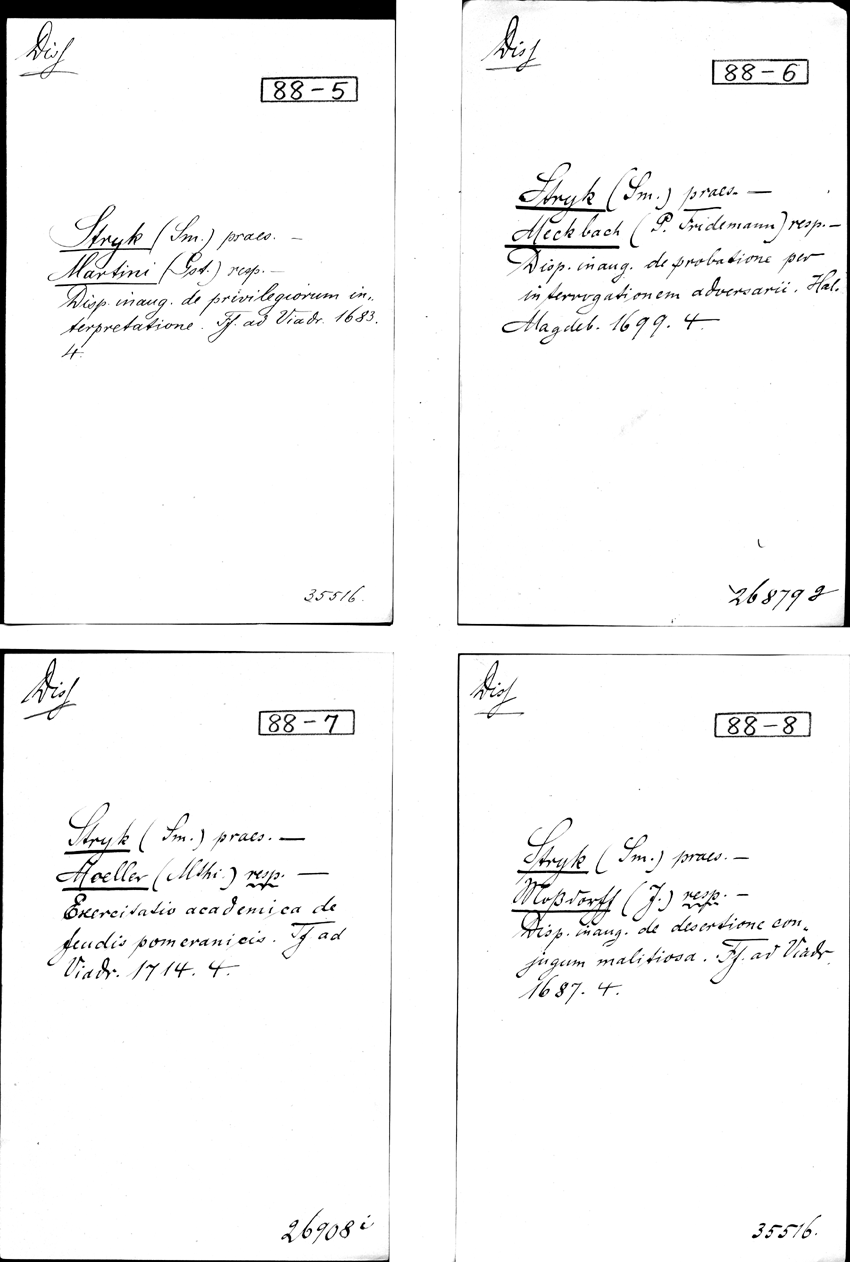 Diss
88-5
Stryk (Sm.) praes. —
Martini (Gst.) resp. —
Disp. inaug. de privilegiorum in-
terpretatione. Ff. ad Viadr. 1683.
4.
35516.
Diss
88-6
Stryk (Sm.) praes. —
Meckbach (P. Fridemann) resp. —
Disp. inaug. de probatione per
interrogationem adversarii. Hal.
Magdeb. 1699. 4.
26879 g
Diss
88-7
Stryk (Sm.) praes. —
Moeller (Mthi.) resp. —
Exercitatio academica de
feudis pomeranicis. Ff ad
Viadr. 1714. 4.
26908 i
Diss
88-8
Stryk (Sm.) praes. —
Moßdorff (J.) resp. —
Disp. inaug. de desertione con-
jugum malitiosa. Ff. ad Viadr.
1687. 4.
35516.